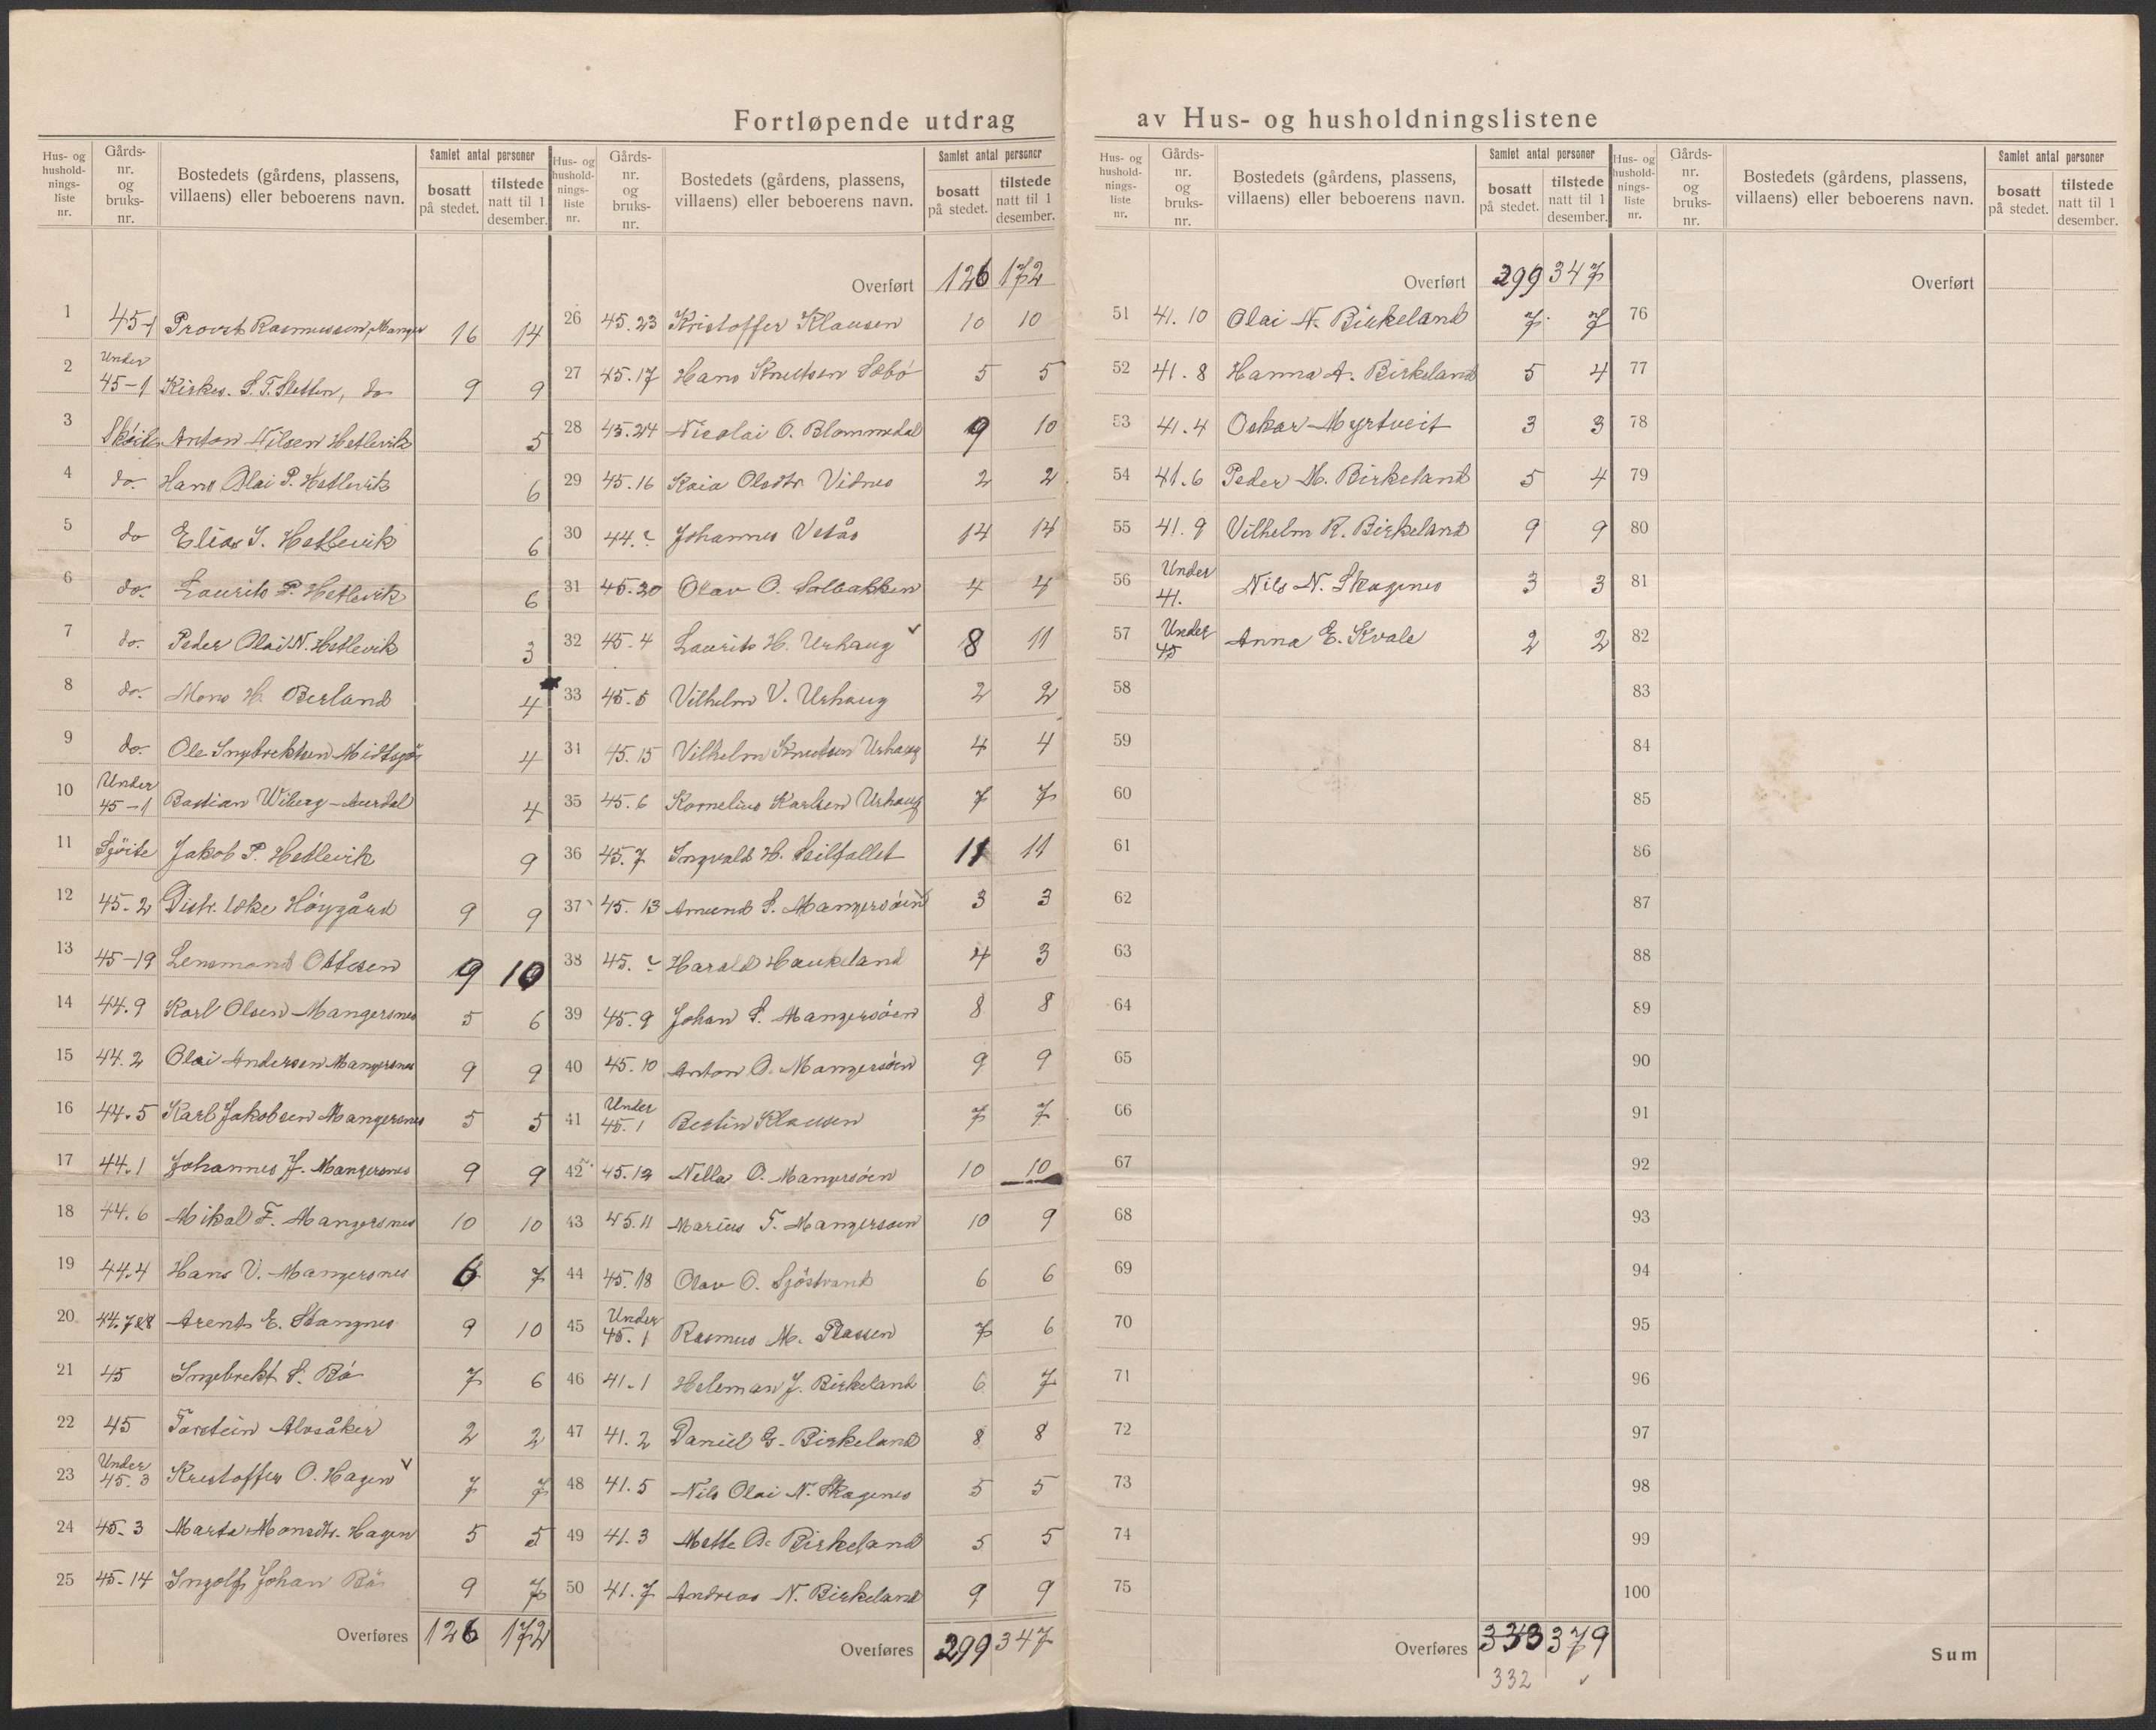 Fortløpende utdrag av Hus- og husholdningslistene
Hus- og husholdnings-liste nr. Gårds-nr. og bruks-nr. Bostedets (gårdens, plassens, villaens) eller beboerens navn. Samlet antal personer bosatt på stedet. tilstede natt til 1 desember.
1 45-1 Provst Rasmussen, Manger 16 14
2 Under 45-1 Kirkes. S. T. Sletten, do 9 9
3 Skøite Anton Nilsen Hetlevik 5
4 do. Hans Olai P. Hetlevik 6
5 do Elias S. Hetlevik 6
6 do. Laurits P. Hetlevik 6
7 do. Peder Olai N. Hetlevik 3
8 do. Mons H. Berland 4
9 do. Ole Ingebrektsen Midtsjø 4
10 Under 45-1 Bastian Wiberg-Aurdal 4
11 Sjöite Jakob P. Hetlevik 9
12 45-2 Distr. læke Höygård 9 9
13 45-19 Lensmand Ottesen 9 10
14 44.9 Karl Olsen Mangersnes 5 6
15 44.2 Olai Andersen Mangersnes 9 9
16 44.5 Karl Jakobsen Mangersnes 5 5
17 44.1 Johannes J. Mangersnes 9 9
18 44.6 Mikal F. Mangersnes 10 10
19 44.4 Hans V. Mangersnes 6 7
20 44.7&8 Arent E. Stangnes 9 10
21 45 Ingebrekt S. Bö 7 6
22 45 Torstein Alvsåker 2 2
23 Under 45.3 Kristoffer O. Hagen 7 7
24 45.3 Marta Monsdtr. Hagen 5 5
25 45-14 Ingolf Johan Bö 9 7
Overføres 126 172
Hus- og husholdnings-liste nr. Gårds-nr. og bruks-nr. Bostedets (gårdens, plassens, villaens) eller beboerens navn. Samlet antal personer bosatt på stedet. tilstede natt til 1 desember.
Overført 126 172
26 45.23 Kristoffer Klausen 10 10
27 45.17 Hans Knutsen Sæbö 5 5
28 45.24 Nicolai O. Blommedal 9 10
29 45.16 Kaia Olsdtr Vidnes 2 2
30 44.? Johannes Vetås 14 14
31 45.20 Olav O. Solbakken 4 4
32 45.4 Laurits H. Urhaug 8 11
33 45.5 Vilhelm V. Urhaug 2 2
34 45.15 Vilhelm Knutsen Urhaug 4 4
35 45.6 Kornelius Karlsen Urhaug 7 7
36 45.7 Ingvald H. Seilfallet 11 11
37 45.13 Amund S. Mangersöen 3 3
38 45.? Harald Haukeland 4 3
39 45.9 Johan S. Mangersöen 8 8
40 45.10 Anton O. Mangersöen 9 9
41 Under 45.1 Bertin Klausen 7 7
42 45.12 Nella O. Mangersöen 10 10
43 45.11 Marius T. Mangersoen 10 9
44 45.18 Olav O. Sjöstrand 6 6
45 Under 45.1 Rasmus M. Plassen 7 6
46 41.1 Heleman J. Birkeland 6 7
47 41.2 Daniel G. Birkeland 8 8
48 41.5 Nils Olai N. Skagenes 5 5
49 41.3 Mette A. Birkeland 5 5
50 41.7 Andreas N. Birkeland 9 9
Overføres 299 347
Hus- og husholdnings-liste nr. Gårds-nr. og bruks-nr. Bostedets (gårdens, plassens, villaens) eller beboerens navn. Samlet antal personer bosatt på stedet. tilstede natt til 1 desember.
Overført 299 347
51 41.10 Olai N. Birkeland 7 7
52 41.8 Hanna A. Birkeland 5 4
53 41.4 Oskar Myrtveit 3 3
54 41.6 Peder M. Birkeland 5 4
55 41.9 Vilhelm R. Birkeland 9 9
56 Under 41. Nils N. Skagenes 3 3
57 Under 45 Anna E. Kvale 2 2
58
59
60
61
62
63
64
65
66
67
68
69
70
71
72
73
74
75
Overføres 333 379
332 ✓
Hus- og husholdnings-liste nr. Gårds-nr. og bruks-nr. Bostedets (gårdens, plassens, villaens) eller beboerens navn. Samlet antal personer bosatt på stedet. tilstede natt til 1 desember.
Overført
76
77
78
79
80
81
82
83
84
85
86
87
88
89
90
91
92
93
94
95
96
97
98
99
100
Sum